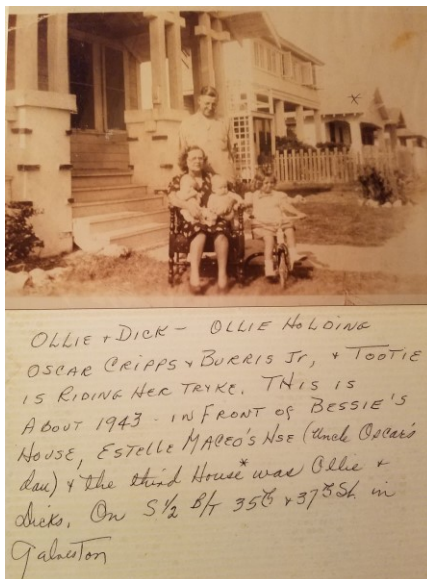 OLLIE + DICK - OLLIE HOLDING
OSCAR CRIPPS + BURRIS Jr, + TOOTIE
IS RIDING HER TRYKE. THIS IS
ABOUT 1943 - IN FRONT OF BESSIE'S
HOUSE, ESTELLE MACEO'S HSE (Uncle Oscar's
dau) + the third House* was Ollie +
Dicks. On S½ B/T 35th + 37th St. in
Galveston